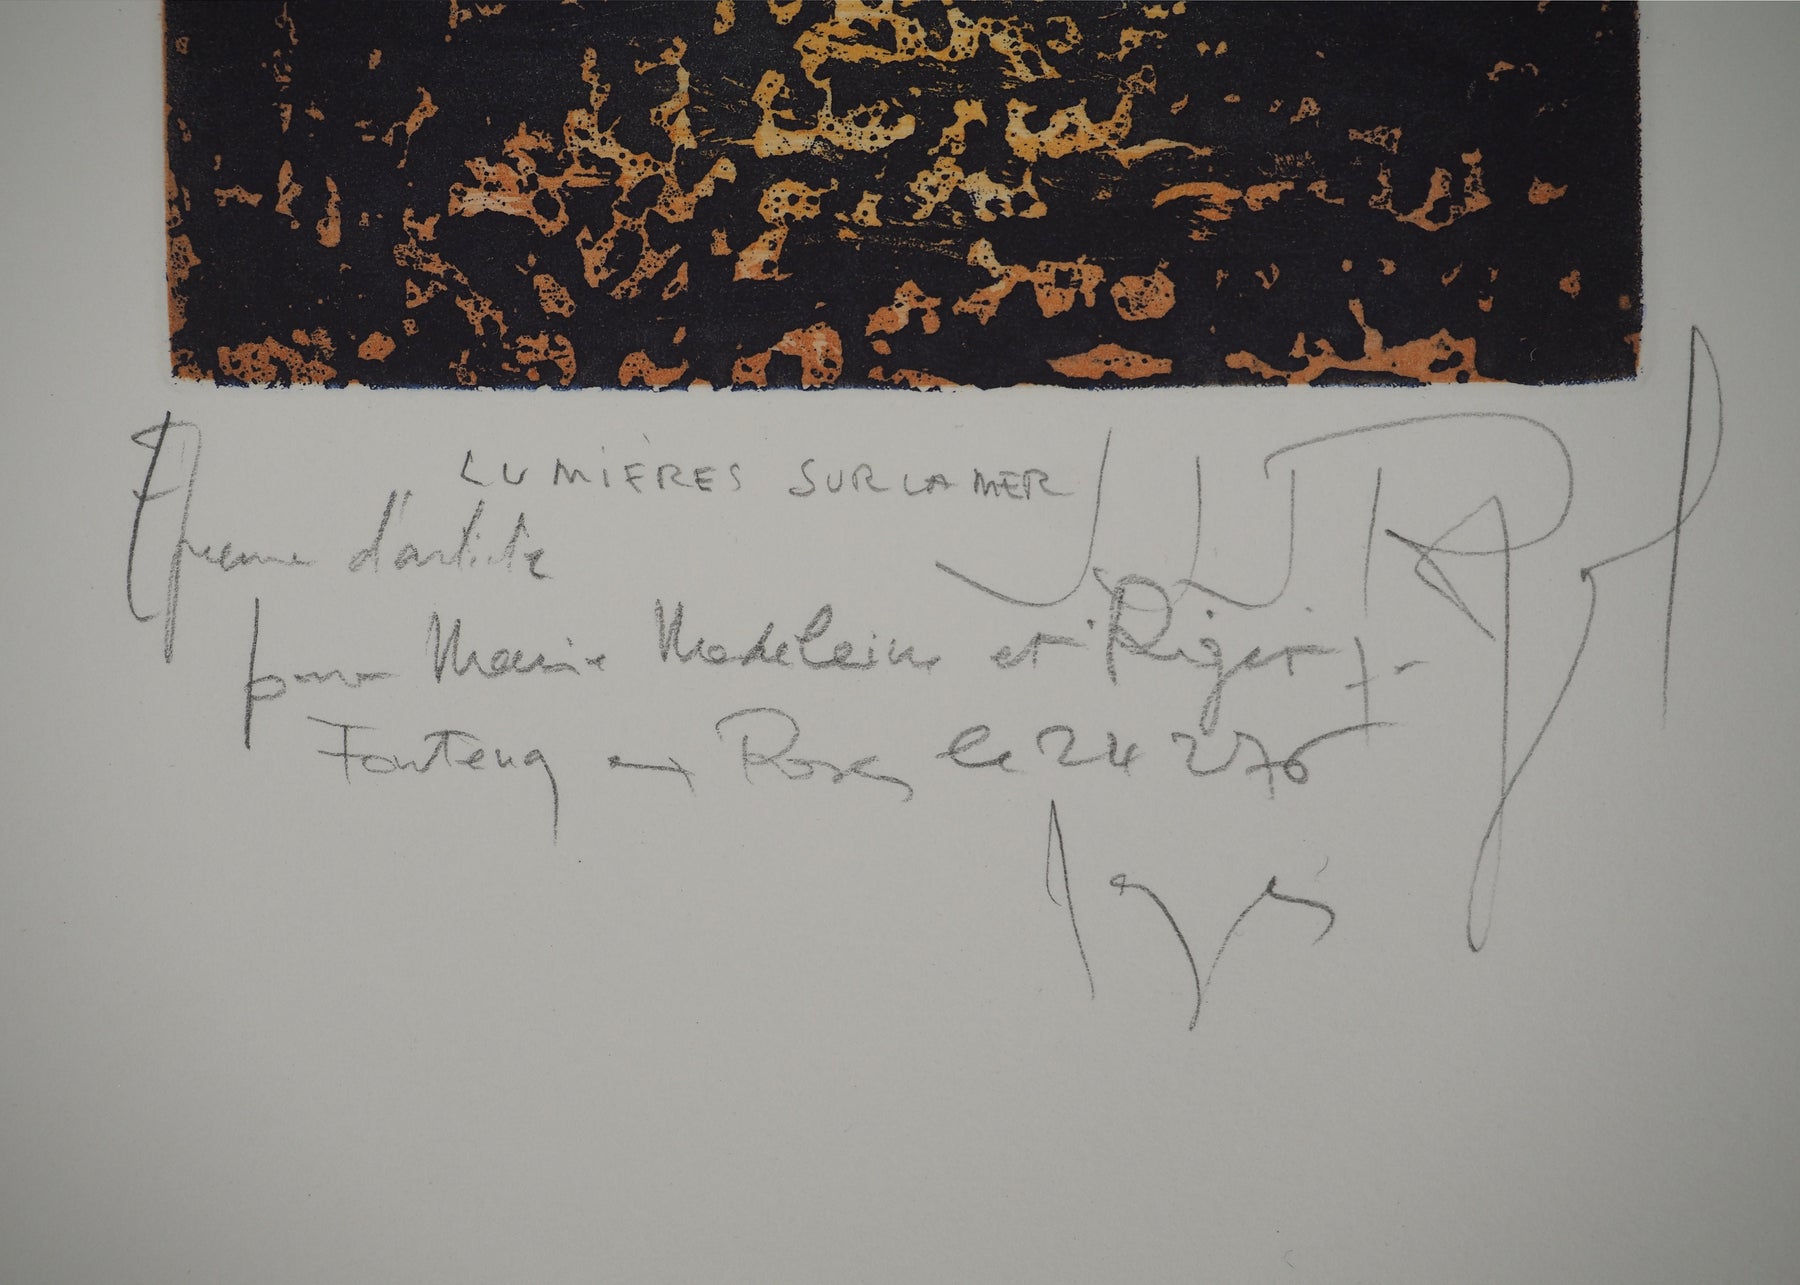 LUMIÈRES SUR LA MER
Epreuve d'artiste
pour Marie Madeleine et
Fontenay aux Roses le 24 2 76